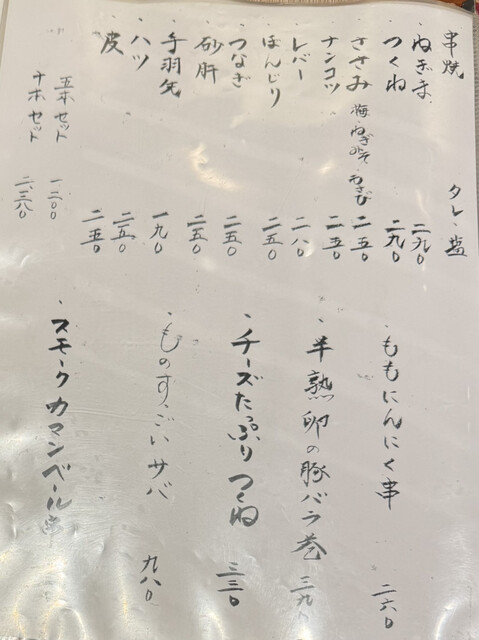 串焼 タレ・塩
・ねぎま 二九〇
・つくね 二九〇
・ささみ 梅・ねぎみそ・わさび 二五〇
・ナンコツ 二五〇
・レバー 二八〇
・ぼんじり 二五〇
・つなぎ 二五〇
・砂肝 二五〇
・手羽先 一九〇
・ハツ 二五〇
・皮 二五〇
五本セット 一二〇〇
十本セット 二、三八〇
・ももにんにく串 二六〇
・半熟卵の豚バラ巻 三九〇
・チーズたっぷりつくね 三三〇
・ものすごいサバ 九八〇
・スモークカマンベール串